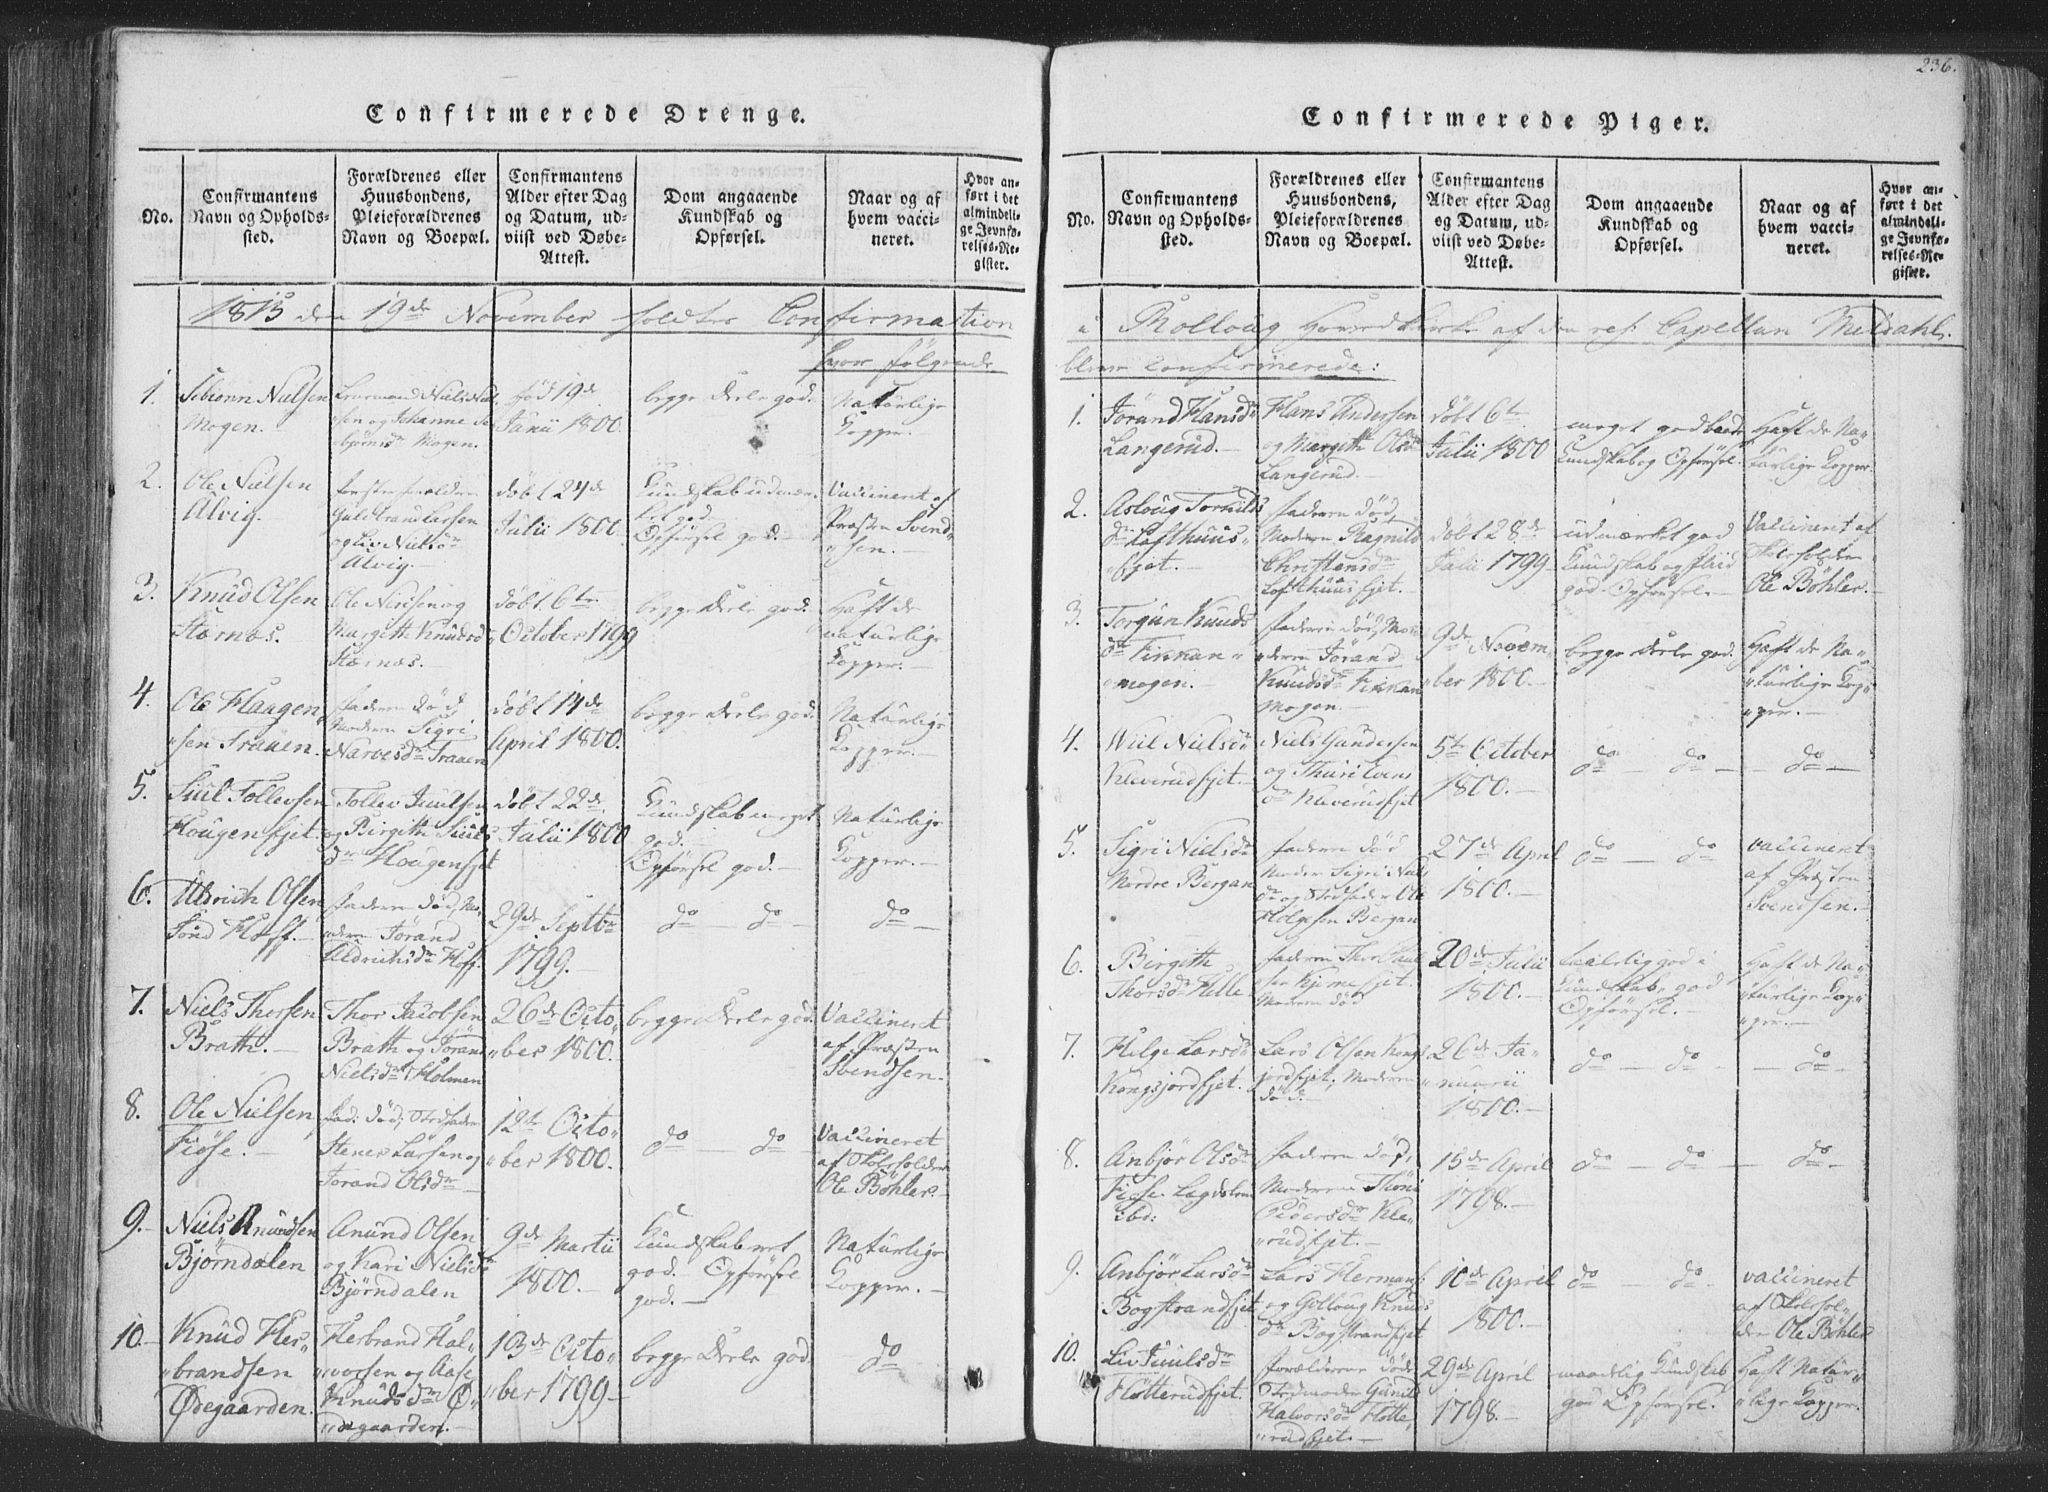 236.
Confirmerede Drenge.
No.
Confirmantens
Navn og Opholds-
sted.
Forældrenes eller
Huusbondens,
Pleieforældrenes
Navn og Boepæl.
Confirmantens
Alder efter Dag
og Datum, ud-
viist ved Døbe-
Attest.
Dom angaaende
Kundskab og
Opførsel.
Naar og af
hvem vacci-
neret.
Hvor an-
ført i det
almindeli-
ge Jevnfø-
relses-Re-
gister.
1815 den 19de November holdtes Confirmation
hvor følgende
1.
Tebiørn Nielsen
Mogen.
Niels Niel-
sen og Johanne Te-
biørnsdr Mogen.
fød 19de
Junii 1800.
begge Deele god.
Naturlige
Kopper.
2.
Ole Nielsen
Alvig.
Fosterforældre
Guldbrand Larsen
og Liv Nielsdr
Alvig.
døbt 24de
Julii 1800.
Kundskab udmær-
ket god
Opførsel god.
Vaccineret af
Præsten Svend-
"sen.
3.
Knud Olsen
Stærnæs.
Ole Nielsen og
Margith Knudsd
Stærnæs.
døbt 6te
October 1799
begge Deele god.
Haft de
naturlige
Kopper.
4.
Ole Haagen-
"sen Traaen.
Faderen død,
Moderen Sigri
Narvesdr Traaen
døbt 14de
April 1800.
begge Deele god.
Naturlige
Kopper.
5.
Juul Tollevsen
Hougen Ejet.
Tollev Juulsen
og Birgith Juuls
dr Hougenejet
døbt 22de
Julii 1800
Kundskab meget
god.
Opførsel god.
Naturlige
Kopper.
6.
Aldrich Olsen
Sønd Hoff.
Faderen død, Mo-
deren Jørand
Aldrichsdr Hoff.
29de Septbr
1799.
do — do —
do —
7.
Niels Thorsen
Brath.
Thor Jacobsen
Brath og Jørand
Nielsdr Holmen
26de Octo-
"ber 1800.
begge Deele god.
Vaccineret
af Præsten
Svendsen.
8.
Ole Nielsen
Fiøse.
Fad: død; Stedfader
Stener Larsen og
Jorand Olsdr
12te Octo-
"ber 1800.
do — do —
Vaccineret
af Skoleholder
Ole Bøhler.
9.
Niels Knudsen
Bjørndalen
Anund Olsen
og Kari Nielsdr
Bjørndalen
9de Martii
1800.
Kundskab ret
god. Opførsel
god.
Naturlige
Kopper.
10.
Knud Her-
"brandsen
Ødegaarden.
Herbrand Hal-
"vorsen og Aase
Knudsdr Ø-
"degaarden.
13de Octo-
"ber 1799
begge Deele god.
do —
Confirmerede Piger.
No.
Confirmantens
Navn og Opholds-
sted.
Forældrenes eller
Huusbondens,
Pleieforældrenes
Navn og Boepæl.
Confirmantens
Alder efter Dag
og Datum, ud-
viist ved Døbe-
Attest.
Dom angaaende
Kundskab og
Opførsel.
Naar og af
hvem vacci-
neret.
Hvor an-
ført i det
almindeli-
ge Jevnfø-
relses-Re-
gister.
i Rolloug Hovedkirke af den res: Capellan Meldahl.
bleve Confirmerede:
1.
Jørand Hansdr
Langerud.
Hans Andersen
og Margith Olsdr
Langerud.
døbt 6te
Julii 1800
meget god baade
Kundskab og Opførsel.
Haft de Na-
turlige Kopper.
2.
Asloug Torkilds
dr Lofthuus-
"ejet.
Faderen død,
Moderen Ragnild
Christensdr
Lofthuus Ejet.
døbt 28de
Julii 1799
udmærket god
Kundskab og Fliid
god Opførsel.
Vaccineret af
Skoleholder
Ole Bøhler.
3.
Torgun Knuds
dr Finnan-
"mogen.
Faderen død, Mo-
"deren Jørand
Knudsdr Finnan
Mogen.
9de Novem-
"ber 1800.
begge Deele god.
Haft de Na-
"turlige Kop-
"per.
4.
Wiil Nielsdr
Kleverudejet.
Niels Gundersen
og Thuri Evens
dr Kleverudejet
5te October
1800.
do — do —
do —
5.
Sigri Nielsdr
Nordre Bergan
Faderen død
Moder Sigri Niels
dr og Stedfader Ole
Helgesen Bergan
27de April
1800.
do — do
vaccineret
af Præsten
Svendsen.
6.
Birgith
Thorsdr Helle
Faderen Thor
Moderen død
20de Julii
1800.
god i
Kundskab, god
Opførsel.
Haft de Na-
"turlige Kop-
"per.
7.
Helge Larsdr
Kongsjordejet.
Lars Olsen Kongs
jordejet; Moderen
død.
26de Ja-
"nuarii
1800.
do — do —
— do —
8.
Anbjør Olsdr
Fiøse
ibd:
Faderen død,
Moderen Thoni
Pedersdr Kle-
"rudejet.
15de April
1798.
do — do —
do —
9.
Anbjør Larsdr
Bogstrandejet
Lars Hermans:
og Golloug Knuds
dr Bogstrandejet
10de April
1800.
do — do
vaccineret
af Skolehol-
der Ole Bøhler
10.
Liv Juulsdr
Fløtterudejet.
Forældrene døde
Stedmoder Gunild
Halvorsdr Fløtte-
"rudejet.
29de April
1798.
maadelig Kundskab
god Opførsel.
Haft Natur-
"lige Kopper.